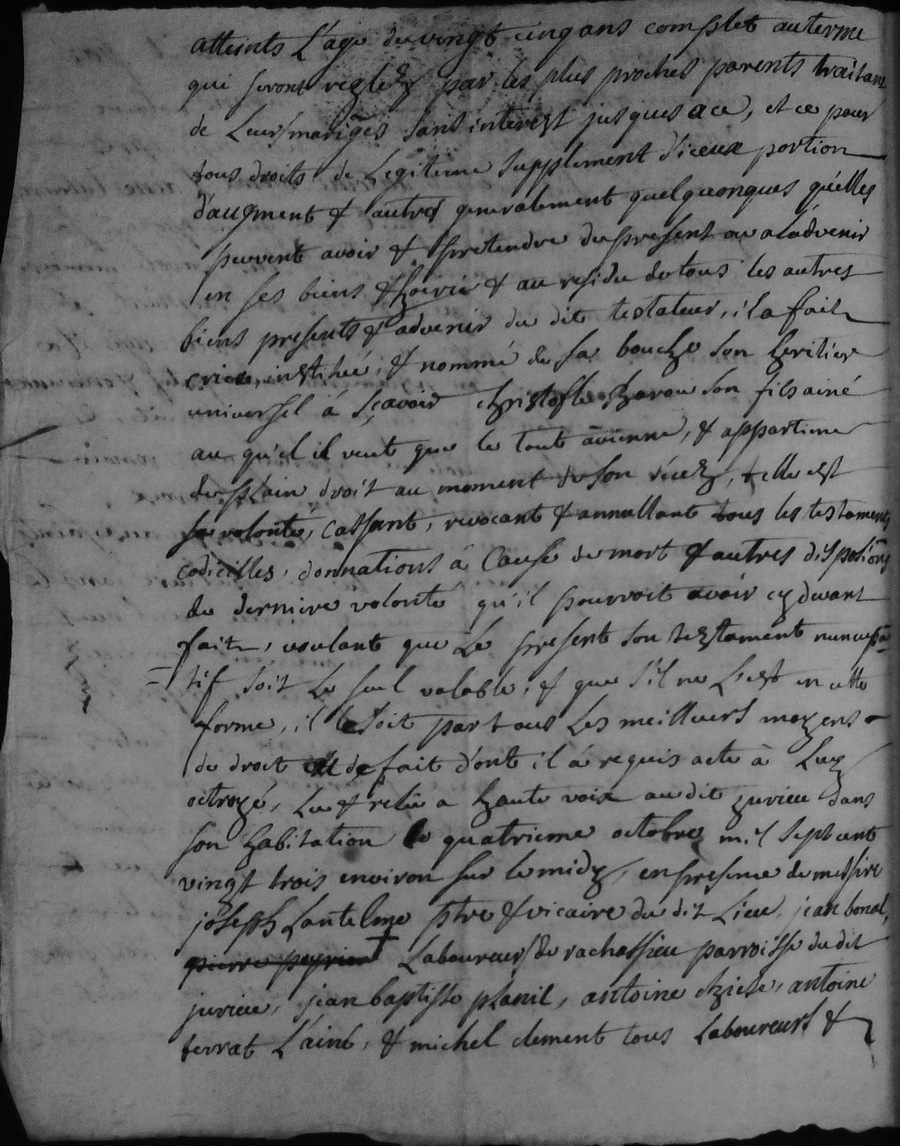 atteints L'age de vingt cinq ans complet au terme
qui seront reglez par les plus proches parents traitans
de Leurs mariages sans interezt jusques a ce, et ce pour
tous droits de Legitime supplement d'iceux portion
d'augment & autres generalement quelquonques qu'elles
peuvent avoir & pretendre de present ou a l'advenir
en ses biens & hoirie & au residu de tous les autres
biens presents & advenir du dit testateur, il a fait
crée, institué, & nommé de sa bouche son heritier
universel á sçavoir christofle son fils ainé
au qu'el il veut que le tout avienne, & appartienne
de plain droit au moment de son décez, telle est
sa volonté, cassant, revocant & annullant tous les testaments
codicilles, donnations à Cause de mort & autres disposions
de derniere volonté qu'il pourroit avoir cy devant
fait, voulant que Le present son teztament nuncupa
tif soit Le seul valable, & que s'il ne L'ezt en cette
forme, il le soit par tous Les meilleurs moyens
de droit et de fait d'ont il á requis acte à Luy
octroyé, Lu & relu a haute voix au dit jurieu dans
son habitation le quatrieme octobre mil sept cent
vingt trois environ sur le midy, en presence de messire
joseph Lantelme ptre & vicaire du dit Lieu, jean bonal,
pierre Laboureurs de rachassieu parroisse du dit
jurieu, jean baptiste planil, antoine antoine
ferrat L'ainé, & michel clement tous Laboureurs &